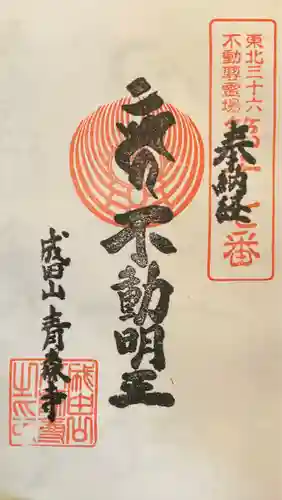 東北三十六
不動尊霊場
第十七番
奉納経
不動明王
成田山青森寺